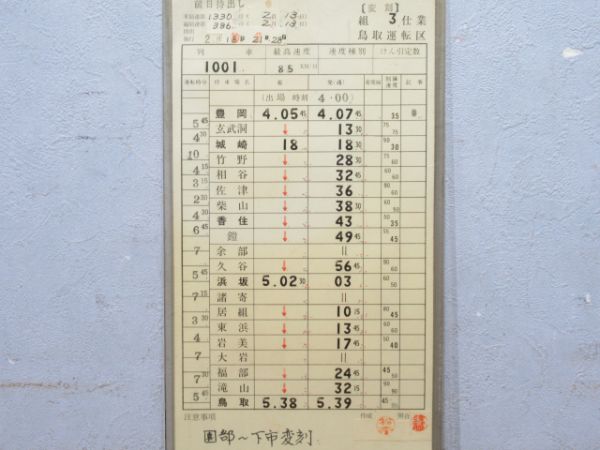 前日持出し
[変刻]
1330 2月13日
組 3 仕業
386 2月13日
鳥取運転区
列 車 最高速度 速度種別 けん引定数
1001 85 KM/H
運転時分 停車場名 着 発(通) 制限速度 記事
(出場 時刻 4.00)
豊岡 4.05 45 4.07 45 35
5 45 玄武洞 ↓ 13 30 75
4 30 城崎 18 18 30 38
10 竹野 ↓ 28 30 60
4 相谷 ↓ 32 45 60
3 佐津 ↓ 36
2 柴山 ↓ 38 30
4 香住 ↓ 43 35
6 45 鎧 ↓ 49 45 45
7 余部 ||
久谷 ↓ 56 45 60
5 45 浜坂 5.02 30 03 50
7 15 諸寄 ||
居組 ↓ 10 15 45
3 30 東浜 ↓ 13 45 60
4 岩美 ↓ 17 45 40
7 大岩 ||
福部 ↓ 24 45 45 50
7 30 滝山 ↓ 32 15 90
5 45 鳥取 5.38 5.39 45
注意事項 作成
園部~下市変刻